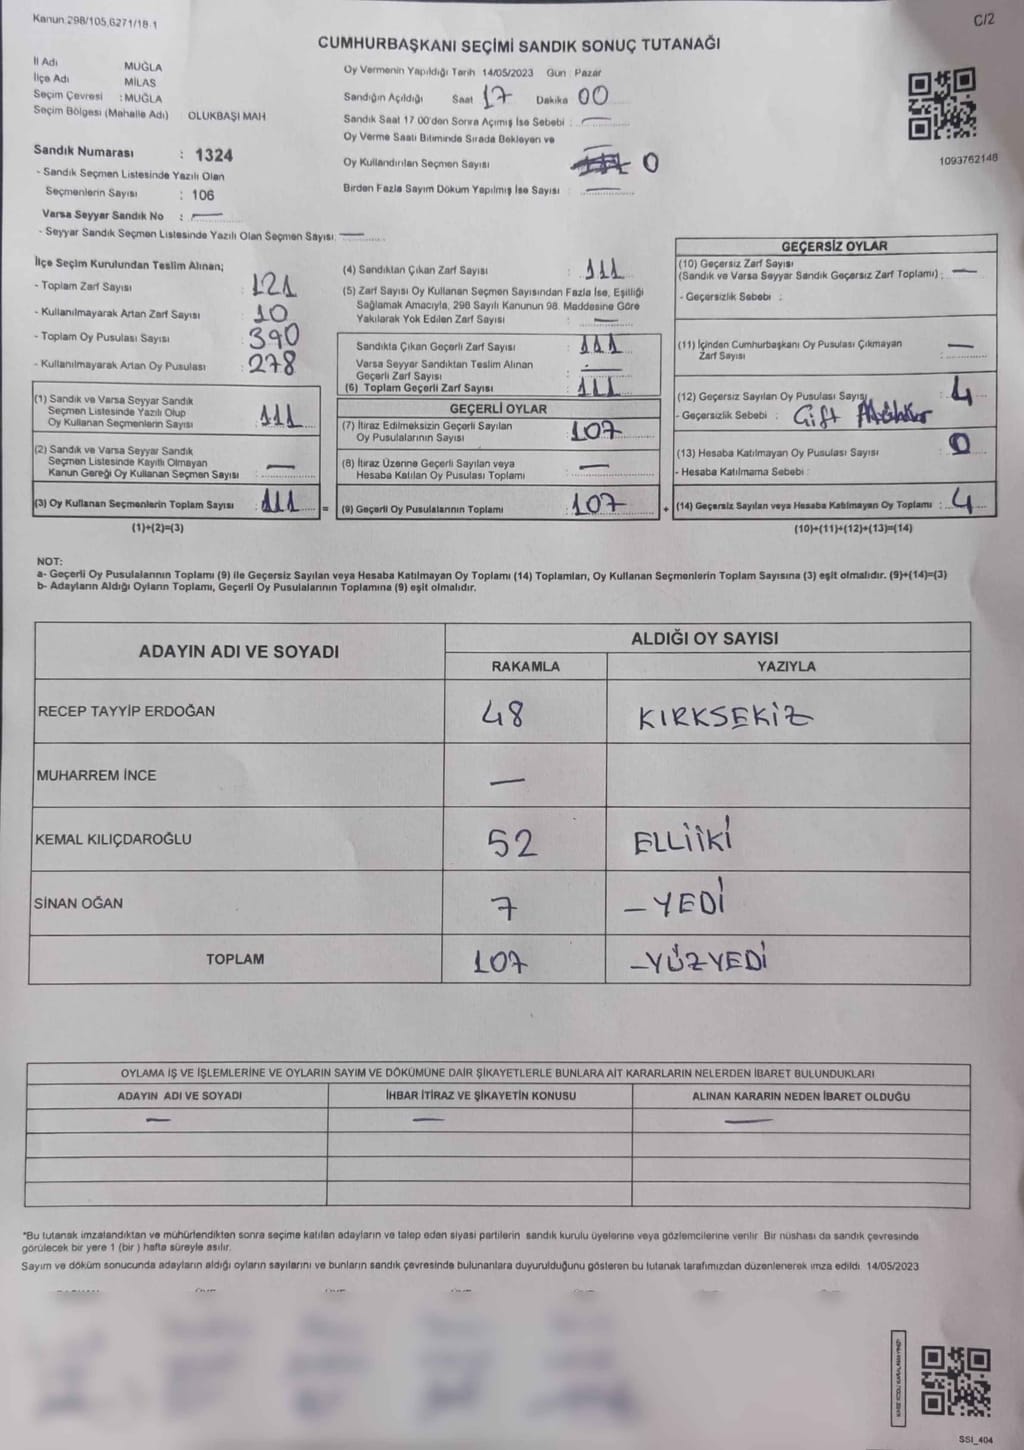 Kanun 298/105,6271/18.1
C/2
CUMHURBAŞKANI SEÇİMİ SANDIK SONUÇ TUTANAĞI
İl Adı MUĞLA
İlçe Adı MİLAS
Seçim Çevresi : MUĞLA
Seçim Bölgesi (Mahalle Adı) OLUKBAŞI MAH
Sandık Numarası : 1324
- Sandık Seçmen Listesinde Yazılı Olan
Seçmenlerin Sayısı : 106
Varsa Seyyar Sandık No : —
- Seyyar Sandık Seçmen Listesinde Yazılı Olan Seçmen Sayısı: —
Oy Vermenin Yapıldığı Tarih 14/05/2023 Gün : Pazar
Sandığın Açıldığı Saat 17 Dakika 00
Sandık Saat 17 00'den Sonra Açımış İse Sebebi : —
Oy Verme Saati Bitiminde Sırada Bekleyen ve
Oy Kullandırılan Seçmen Sayısı 0
Birden Fazla Sayım Döküm Yapılmış İse Sayısı : —
1093762148
İlçe Seçim Kurulundan Teslim Alınan;
- Toplam Zarf Sayısı : 121
- Kullanılmayarak Artan Zarf Sayısı : 10
- Toplam Oy Pusulası Sayısı : 390
- Kullanılmayarak Artan Oy Pusulası : 278
(1) Sandık ve Varsa Seyyar Sandık
Seçmen Listesinde Yazılı Olup
Oy Kullanan Seçmenlerin Sayısı : 111
(2) Sandık ve Varsa Seyyar Sandık
Seçmen Listesinde Kayıtlı Olmayan
Kanun Gereği Oy Kullanan Seçmen Sayısı : —
(3) Oy Kullanan Seçmenlerin Toplam Sayısı : 111 =
(1)+(2)=(3)
(4) Sandıktan Çıkan Zarf Sayısı : 111
(5) Zarf Sayısı Oy Kullanan Seçmen Sayısından Fazla İse, Eşitliği
Sağlamak Amacıyla, 298 Sayılı Kanunun 98. Maddesine Göre
Yakılarak Yok Edilen Zarf Sayısı : —
Sandıkta Çıkan Geçerli Zarf Sayısı : 111
Varsa Seyyar Sandıktan Teslim Alınan
Geçerli Zarf Sayısı : —
(6) Toplam Geçerli Zarf Sayısı : 111
GEÇERLİ OYLAR
(7) İtiraz Edilmeksizin Geçerli Sayılan
Oy Pusulalarının Sayısı : 107
(8) İtiraz Üzerine Geçerli Sayılan veya
Hesaba Katılan Oy Pusulası Toplamı : —
(9) Geçerli Oy Pusulalarının Toplamı : 107 +
GEÇERSİZ OYLAR
(10) Geçersiz Zarf Sayısı
(Sandık ve Varsa Seyyar Sandık Geçersiz Zarf Toplamı) : —
- Geçersizlik Sebebi :
(11) İçinden Cumhurbaşkanı Oy Pusulası Çıkmayan
Zarf Sayısı : —
(12) Geçersiz Sayılan Oy Pusulası Sayısı : 4
- Geçersizlik Sebebi : Çift
(13) Hesaba Katılmayan Oy Pusulası Sayısı : 0
- Hesaba Katılmama Sebebi :
(14) Geçersiz Sayılan veya Hesaba Katılmayan Oy Toplamı : 4
(10)+(11)+(12)+(13)=(14)
NOT:
a- Geçerli Oy Pusulalarının Toplamı (9) ile Geçersiz Sayılan veya Hesaba Katılmayan Oy Toplamı (14) Toplamları, Oy Kullanan Seçmenlerin Toplam Sayısına (3) eşit olmalıdır. (9)+(14)=(3)
b- Adayların Aldığı Oyların Toplamı, Geçerli Oy Pusulalarının Toplamına (9) eşit olmalıdır.
ADAYIN ADI VE SOYADI
ALDIĞI OY SAYISI
RAKAMLA YAZIYLA
RECEP TAYYİP ERDOĞAN 48 KIRKSEKİZ
MUHARREM İNCE —
KEMAL KILIÇDAROĞLU 52 ELLİİKİ
SİNAN OĞAN 7 -YEDİ
TOPLAM 107 -YÜZYEDİ
OYLAMA İŞ VE İŞLEMLERİNE VE OYLARIN SAYIM VE DÖKÜMÜNE DAİR ŞİKAYETLERLE BUNLARA AİT KARARLARIN NELERDEN İBARET BULUNDUKLARI
ADAYIN ADI VE SOYADI İHBAR İTİRAZ VE ŞİKAYETİN KONUSU ALINAN KARARIN NEDEN İBARET OLDUĞU
— — —
*Bu tutanak imzalandıktan ve mühürlendikten sonra seçime katılan adayların ve talep eden siyasi partilerin sandık kurulu üyelerine veya gözlemcilerine verilir. Bir nüshası da sandık çevresinde
görülecek bir yere 1 (bir ) hafta süreyle asılır.
Sayım ve döküm sonucunda adayların aldığı oyların sayılarını ve bunların sandık çevresinde bulunanlara duyurulduğunu gösteren bu tutanak tarafımızdan düzenlenerek imza edildi 14/05/2023
SSI_404